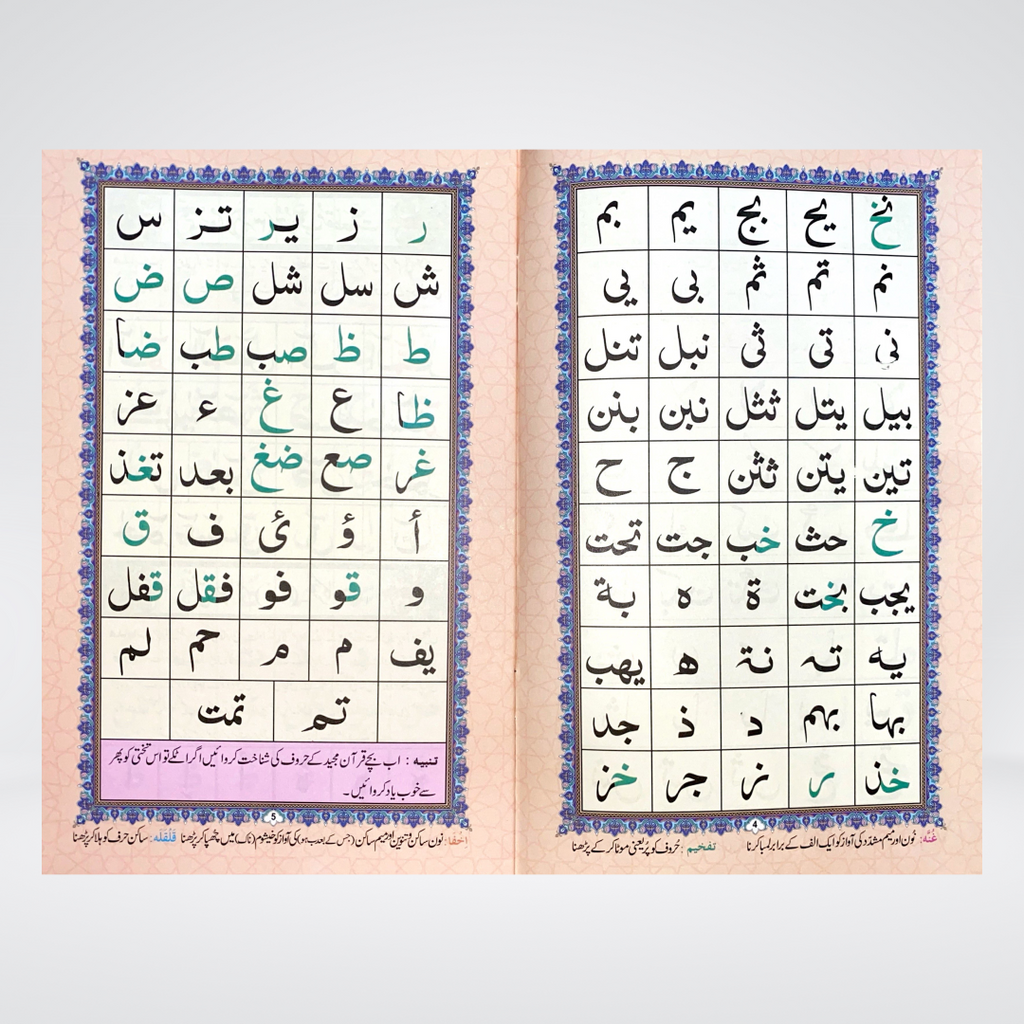 نخ یح بج یم بم
نم تم ثم بی یی
نی تی ثی نبل تنل
بیل یتل نثل نبن بنن
تین یتن نثن ج ح
خ حث خب جت تحت
یجب بخت ة ه بة
یه تہ نة ھ یھب
بها بهم د ذ جد
خذ ر نز جر خز
4
غُنّہ: نُون اور میم مشدّد کی آواز کو ایک الف کے برابر لمبا کرنا
تفخیم: حُروف کو پُر یعنی موٹا کر کے پڑھنا
ر ز یر تز س
ش سل شل ص ض
ط ظ صب طب ضا
ظا ع غ ء عز
غر صع ضغ بعد تغذ
أ ؤ ئ ف ق
و قو فو فقل قفل
یف م م حم لم
تم تمت
تنبیہ: اب بچے قرآن مجید کے حروف کی شناخت کروائیں اگر اٹکے تو اس تختی کو پھر
سے خوب یاد کروائیں۔
5
اخفا: نُون ساکن و تنوین اور میم ساکن (جس کے بعد ب ہو) کی آواز کو خیشوم (ناک) میں چھپا کر پڑھنا قَلْقَلَہ: ساکن حرف کو ہلا کر پڑھنا